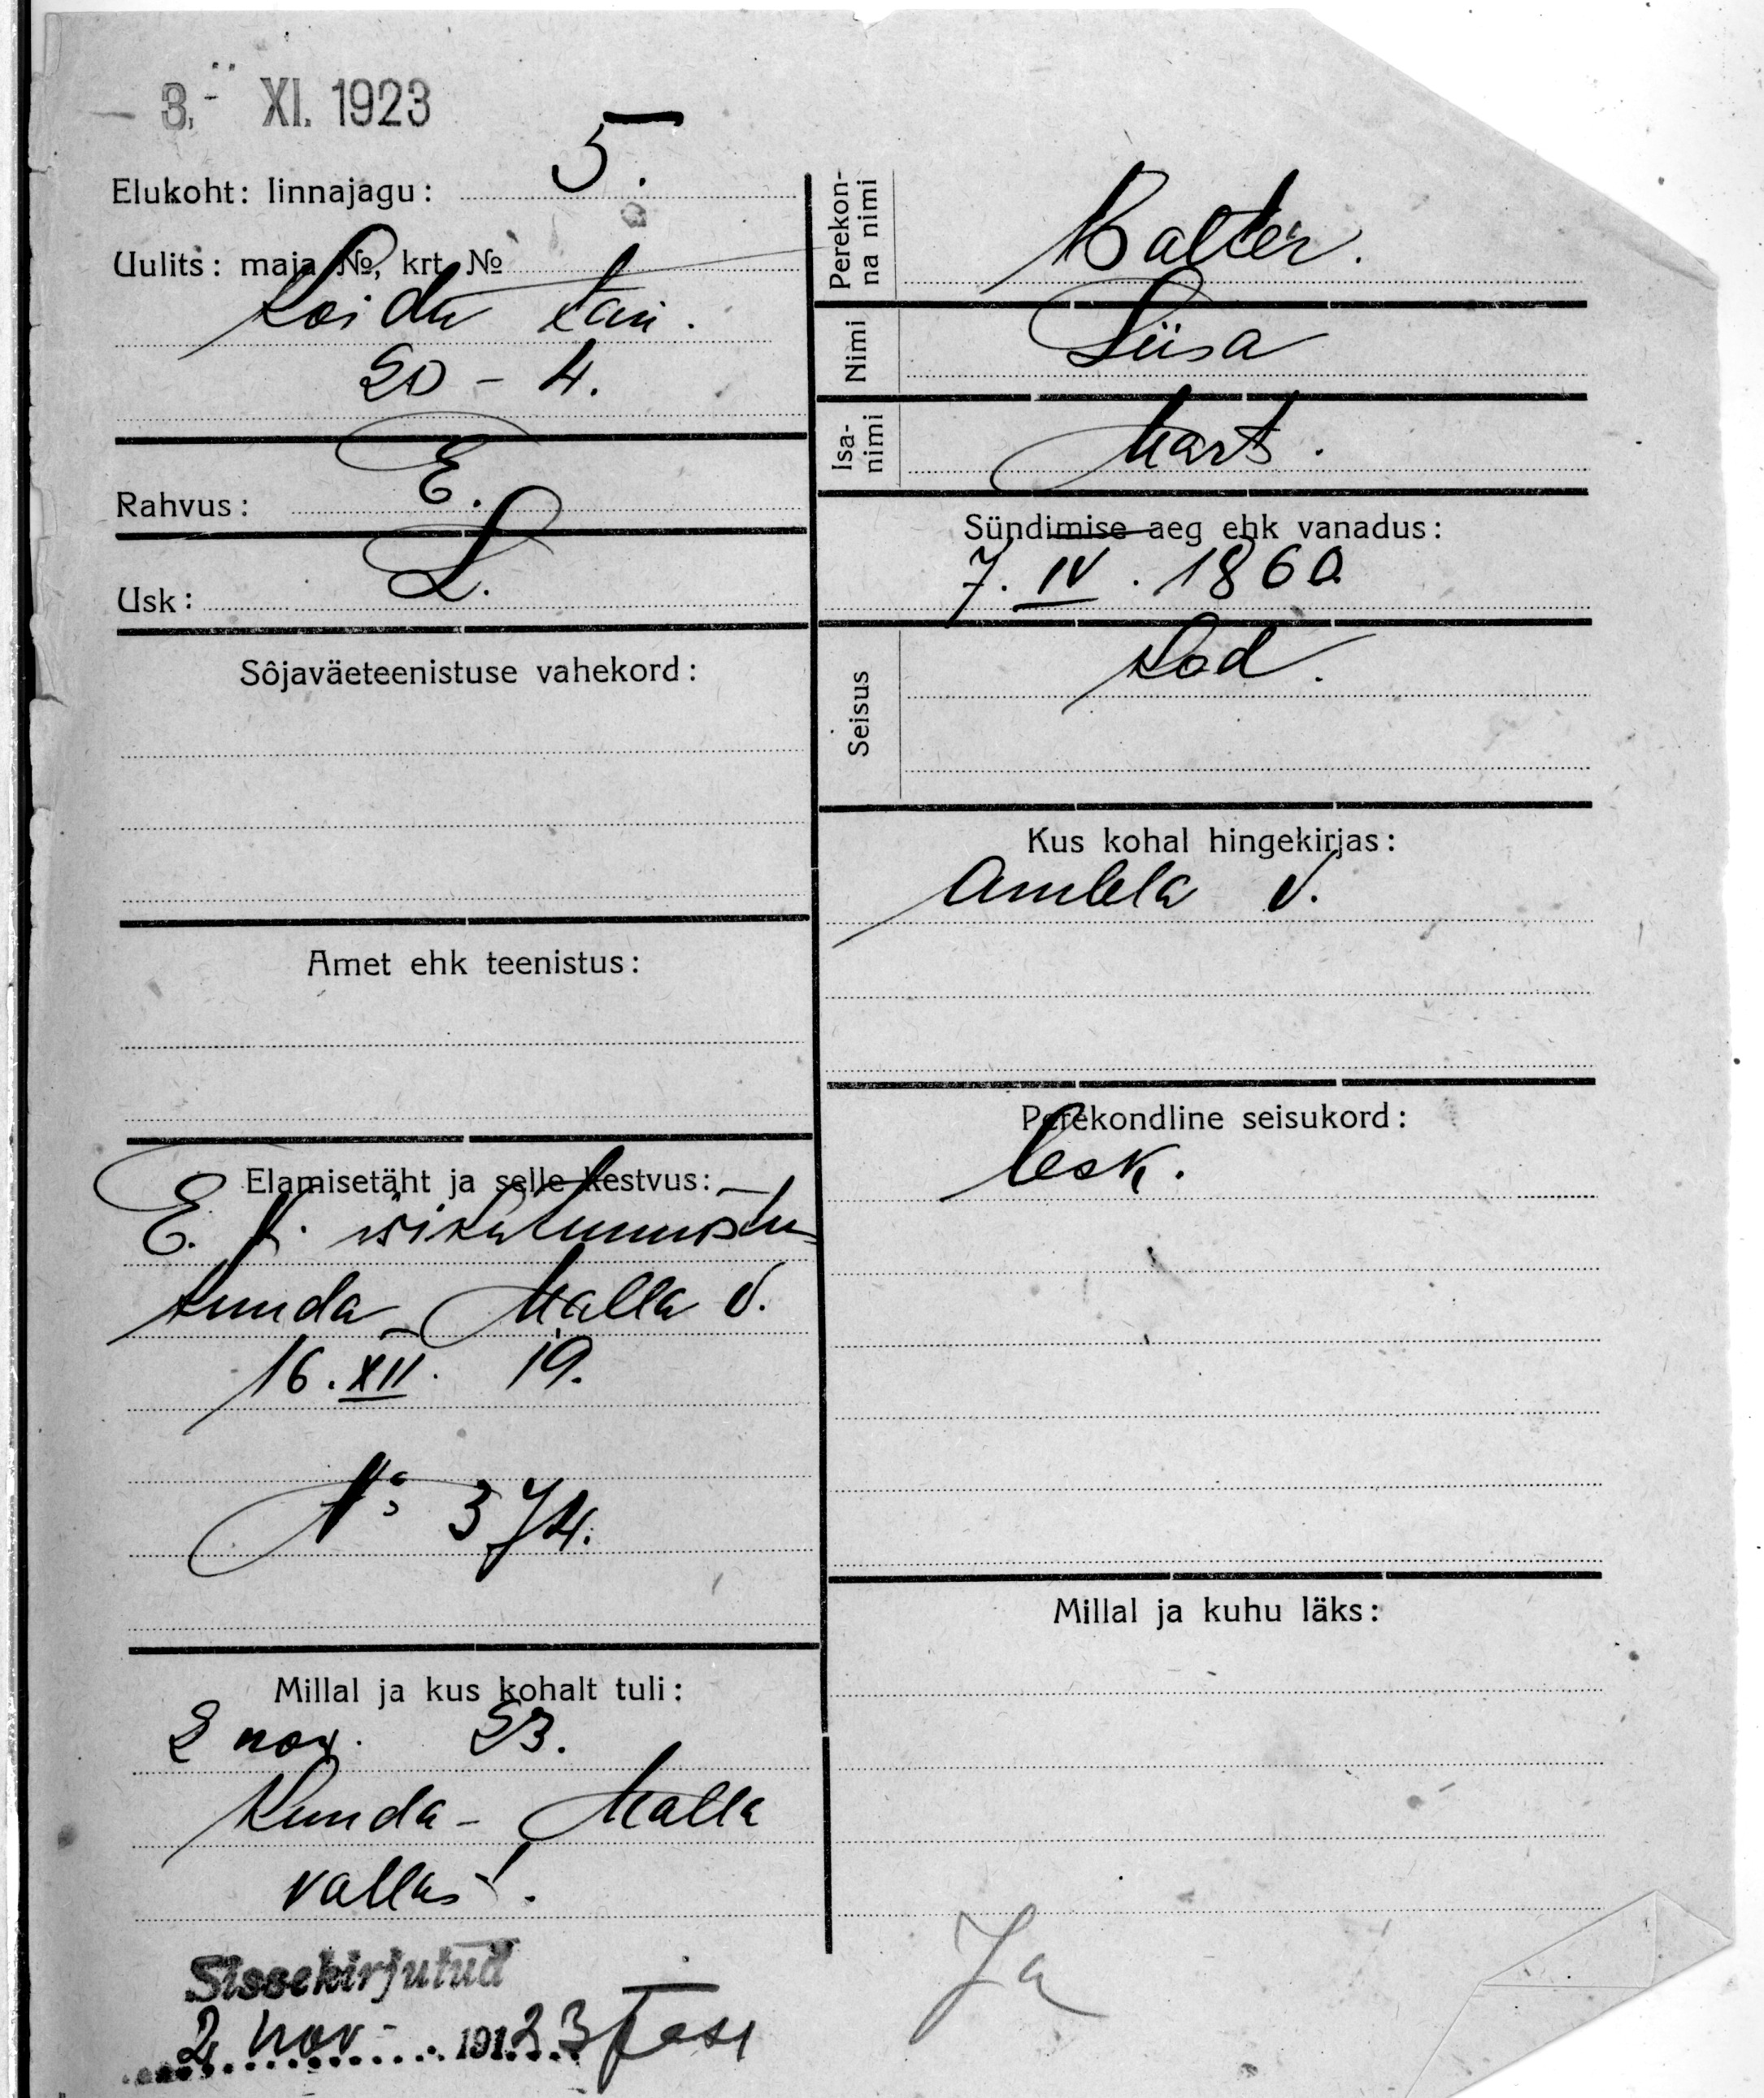 3. XI. 1923
Elukoht: linnajagu: 5.
Uulits: maja №, krt. №
Koidu tän.
20 – 4.
Rahvus: E.
Usk: L.
Sôjaväeteenistuse vahekord:
Amet ehk teenistus:
Elamisetäht ja selle kestvus:
E. V. isikutunnistu
Kunda - Malla v.
16. XII. 19.
№ 374.
Millal ja kus kohalt tuli:
2 nov. 23.
Kunda - Malla
vallas.
Sissekirjutud
2. nov. 1923
Perekon-
na nimi
Balter.
Nimi
Liisa
Isa-
nimi
Mart.
Sündimise aeg ehk vanadus:
7. IV. 1860.
Seisus
Kod.
Kus kohal hingekirjas:
Ambla v.
Perekondline seisukord:
lesk.
Millal ja kuhu läks:
Ja